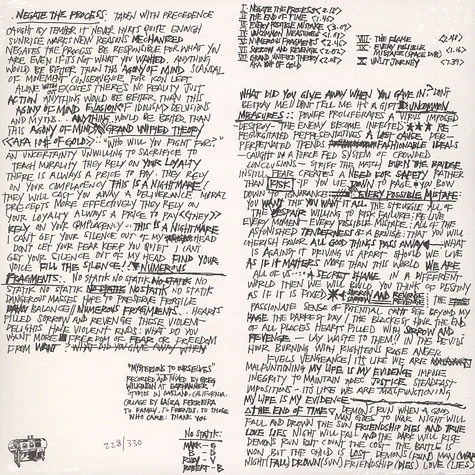 . NEGATE THE PROCESS: TAKEN WITH PRECEDENCE
CAUGHT BY TEMPER IT NEVER HURTS QUITE ENOUGH
OTHERWISE WASN'T REASONS MECHANIZED
NEGATES THE PROCESS BE RESPONSIBLE FOR WHAT YOU
ARE EVEN IF IT'S NOT WHAT YOU WANTED. ANYTHING
WOULD BE BETTER THAN THIS AGONY OF MIND SCANDAL
OF CONVENIENT CONSEQUENCE FOR
ALONE WITH EXCUSES THERE'S NO REALITY JUST
ACTION ANYTHING WOULD BE BETTER THAN THIS
AGONY OF MIND ILLUSIONS OF IDENTITY DELUSIONS
AND MYTHS. ANYTHING WOULD BE BETTER THAN
THIS AGONY OF MIND GRAND UNIFIED THEORY
AKA POT OF GOLD "WHO WILL YOU FIGHT FOR?"
AN UNCERTAINTY UNWILLING TO SACRIFICE TO
TEACH MORALITY THEY RELY ON YOUR LOYALTY
THERE IS ALWAYS A PRICE TO PAY. THEY RELY
ON YOUR COMPLACENCY THIS IS A NIGHTMARE!
THEY WILL CAST YOU AWAY A DELIVERANCE MORAL
PRECEPTS MORE EFFECTIVELY THEY RELY ON
YOUR LOYALTY ALWAYS A PRICE TO PAY <THEY>
RELY ON YOUR COMPLACENCY - THIS IS A NIGHTMARE
I CAN'T GET YOUR SILENCE OUT OF MY HEAD
DON'T LET YOUR FEAR KEEP YOU QUIET I CAN'T
GET YOUR SILENCE OUT OF MY HEAD FIND YOUR
VOICE FILL THE SILENCE! NUMEROUS
FRAGMENTS: NO STATIK NO STATIK NO STATIK NO
STATIK NO STATIK NO STATIK NO STATIK NO STATIK
DANGEROUS MASSES HOPE TO PRESERVE FRAGILE
BELONGING NUMEROUS FRAGMENTS... HEARTS
FILLED SORROW AND REVENGE THESE VIOLENT
DELIGHTS HAVE VIOLENT ENDS: WHAT DO YOU
WANT MORE FREEDOM OF FEAR OR FREEDOM
FROM WANT? WHAT DID YOU GIVE AWAY WHEN
"MYSTERIOUS TO OURSELVES"
RECORDED AND MIXED BY GREG
WILKINSON AT EARHAMMER
STUDIOS IN OAKLAND, CALIFORNIA.
COLLAGE BY LAURA FERREIRA
TO FAMILY, TO FRIENDS, TO THOSE
WHO CARE: THANK YOU
NO STATIK:
MARK - G
B - D
RUBY - V
ROBERT - B
228/330
I NEGATE THE PROCESS (2:18)
II THE END OF TIME (1:41)
III EVERY POSSIBLE MISTAKE (3:09)
IV UNCOMMON MEASURES (1:07)
V NUMEROUS FRAGMENTS (1:41)
VI SORROW AND REVENGE (2:02)
VII GRAND UNIFIED THEORY (2:08)
AKA POT OF GOLD
VIII THE FLAME (2:41)
IX EVERY POSSIBLE
MISTAKE (SPACE DUB)
X UNLIT JOURNEY (7:39)
WHAT DID YOU GIVE AWAY WHEN YOU GAVE IN? DON'T
BETRAY ME!! DON'T TELL ME IT'S A GIFT UNCOMMON
MEASURES:: POWER PROLIFERATES A VIRUS IMPOSED
DESTROY - THE ENEMY BECOME INFESTED PRE
FABRICATED REPRESENTATIONS A LOST CAUSE PER-
PERTUATED TRENDS FASHIONABLE IDEALS
CAUGHT IN A PRICE FED SYSTEM OF CROWDED
CONCLUSIONS - STRIKE THE MATCH BURN THE BRIDGE
INSTILL FEAR CREATES A NEED FOR SAFETY RATHER
THAN RISK IF YOU LIE DOWN TO PAGE YOU BOW
DOWN TO IGNORANCE EVERY POSSIBLE MISTAKE:
DO YOU WANT THIS YOU WANT IT ALL THE STRUGGLE ALL OF
THE DESPAIR WILLING TO RISK FAILURE: RE LIVE
EVERY MOMENT EVERY POSSIBLE MISTAKE: ALL OF THE
ASTONISHED TENDERNESS OF A BRUISE THAT YOU WILL
CHERISH FAVOR ALL GOOD THINGS PASS AWAY WHAT
IS AGAINST IT DRIVING US APART SHOULD WE LIVE
AS IF IT MATTERS MORE THAN THIS WORLD WE ARE
ALL OF US::: A SECRET FLAME IN A DIFFERENT
WORLD THEN WE WILL BUILD YOU THINK OF DESTINY
AS IF IT IS FIXED SORROW AND REVENGE: THE
PASSIONATE SENSE OF POTENTIAL CAN'T SEE BEYOND MY
RAGE THE DARKEST DAY! THE BLACKEST HOUR THE END
OF ALL PLACES HEARTS FILLED WITH SORROW AND
REVENGE - LAY WASTE TO THEM!! IN THE DEVIL'S
HOUR BURNING WITH RIGHTEOUS RAGE ANGER
FUELS VENGEANCE ITS LIKE WE ARE
MALFUNCTIONING MY LIFE IS MY EVIDENCE IMPURE
INTEGRITY TO MAINTAIN DOES JUSTICE STEADFAST
IMPOSITIONS - ITS LIKE WE ARE MALFUNCTIONING
MY LIFE IS MY EVIDENCE
THE END OF TIME DEMONS RUN WHEN A GOOD
MAN GOES TO WAR NIGHT WILL
FALL AND DROWN THE SUN FRIENDSHIP DIES AND TRUE
LOVE LIES NIGHT WILL FALL AND THE DARK WILL RISE
DEMONS RUN BUT COUNT THE COST THE BATTLE IS
WON BUT THE CHILD IS LOST DEMONS (RUN) MAN (WAR)
NIGHT (FALL) DROWN (SUN) (FRIENDSHIP) DIES LOVE LIES